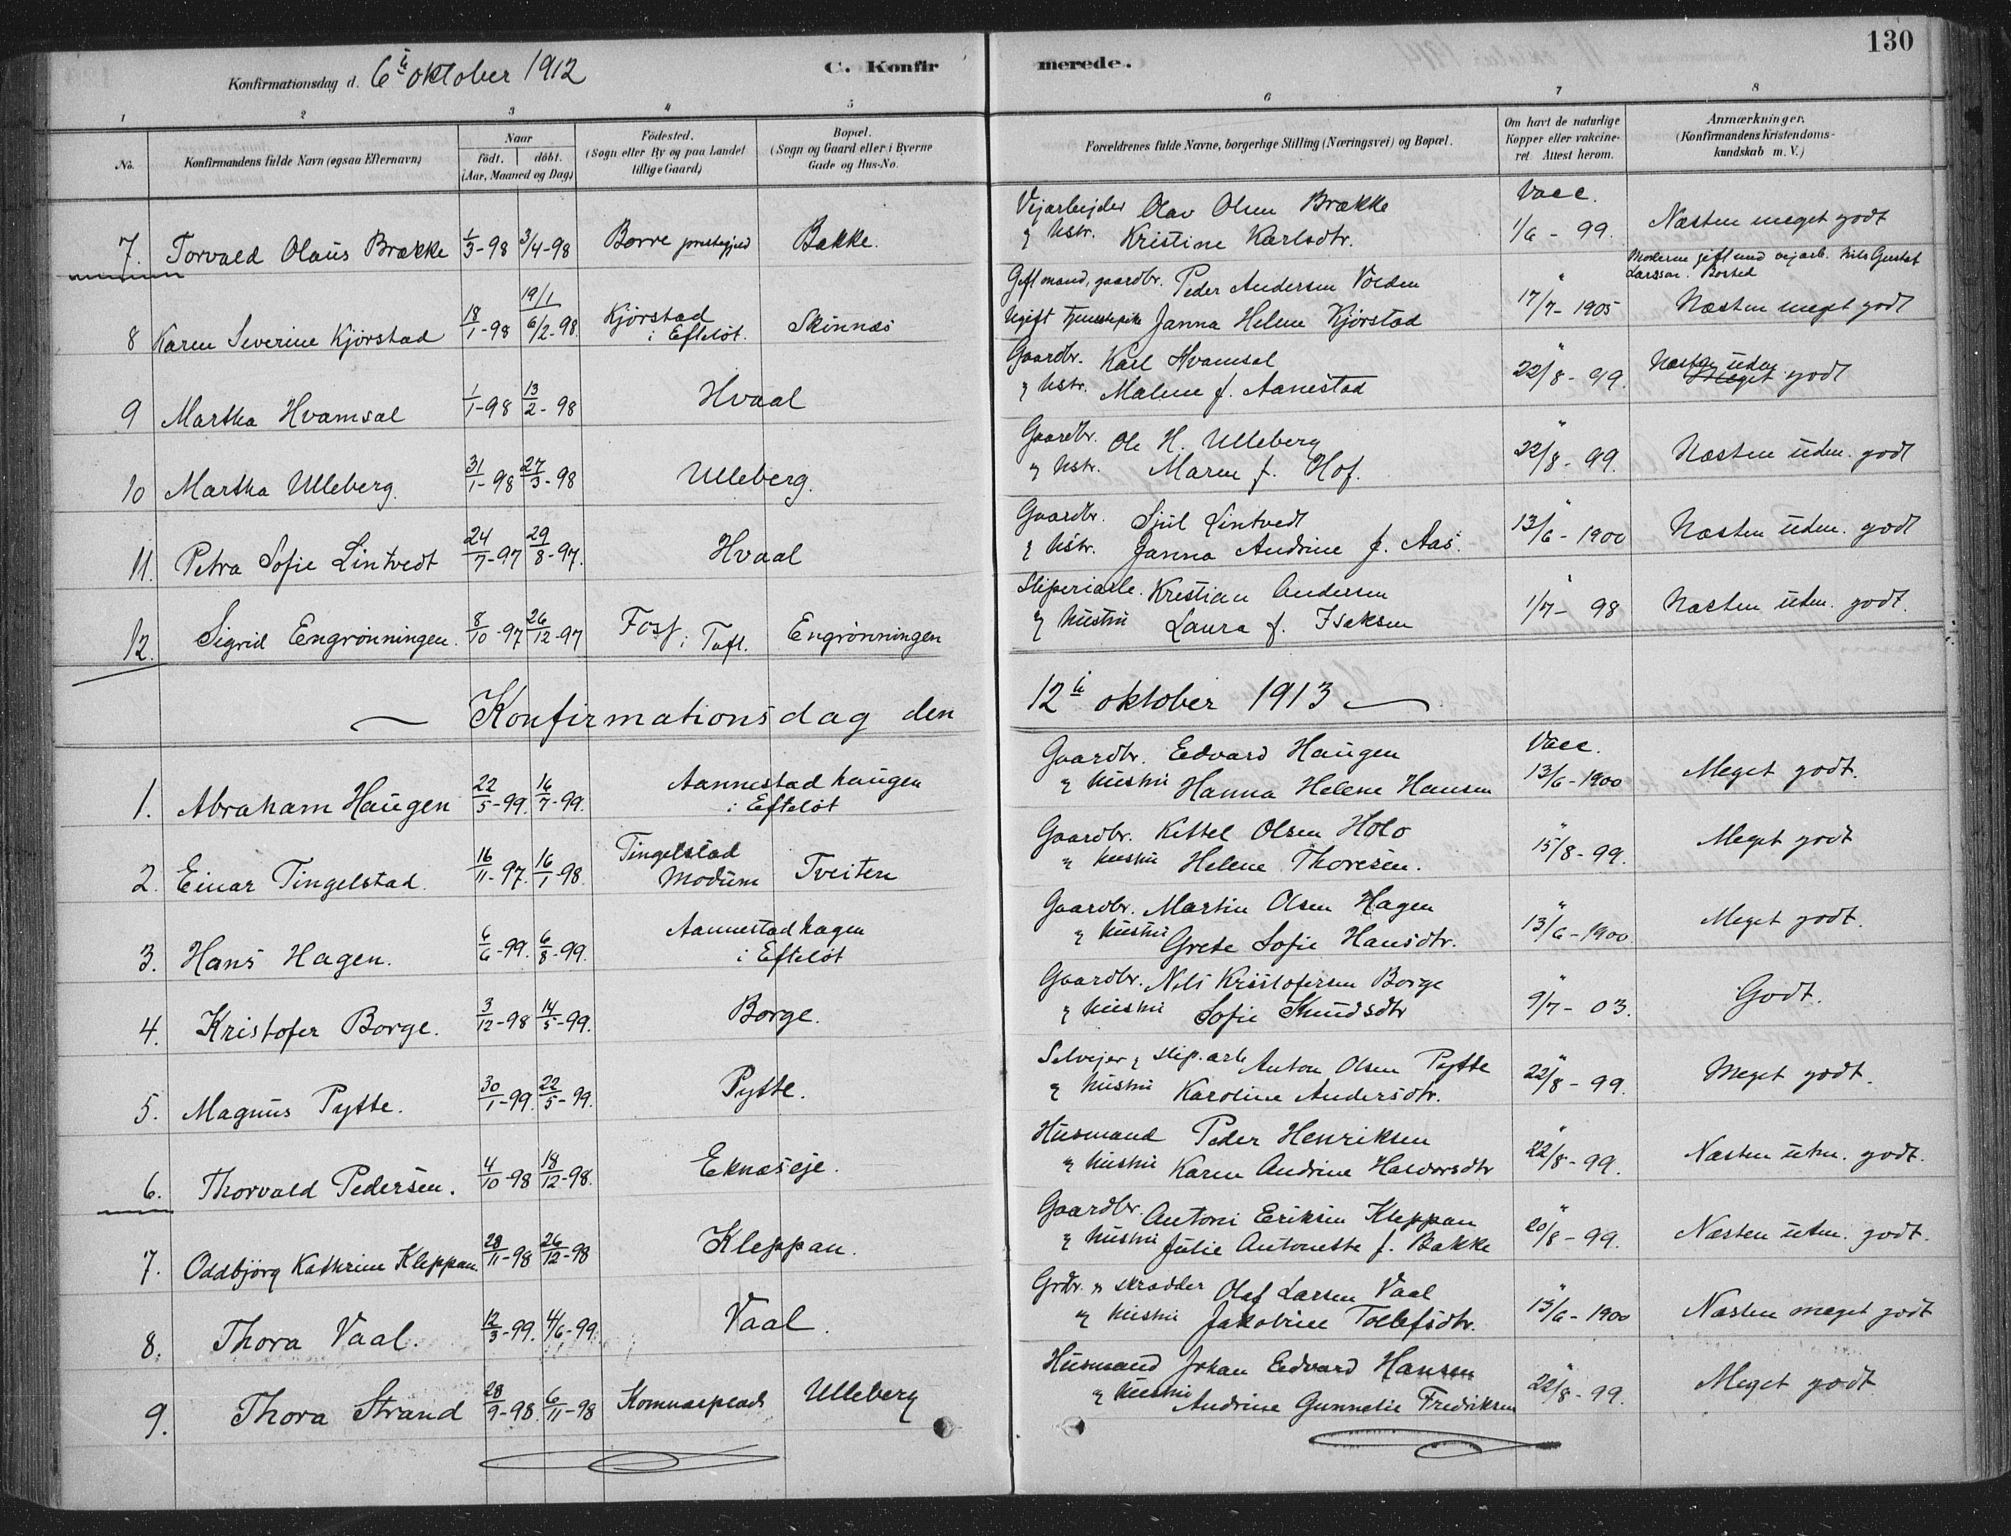 130
Konfirmationsdag d. 6te oktober 1912
C. Konfirmerede.
1 2 3 4 5 6 7 8
No.
Konfirmandens fulde Navn (ogsaa Efternavn)
Naar
født. døbt.
(Aar, Maaned og Dag)
Fødested.
(Sogn eller By og paa Landet
tillige Gaard)
Bopæl.
(Sogn og Gaard eller i Byerne
Gade og Hus-No.
Forældrenes fulde Navne, borgerlige Stilling (Næringsvei) og Bopæl.
Om havt de naturlige
Kopper eller vakcine-
ret Attest herom.
Anmærkninger.
(Konfirmandens Kristendoms-
kundskab m. V.)
7. Torvald Olaus Brække 1/3-98 3/4-98 Borre prestegjeld Bakke. Vejarbejder Olav Olsen Brække Vacc.
& hstr. Kristine Karlsdtr. 1/6 - 99. Næsten meget godt
Moderen gift med vejarb. Nils Gustat
Larsson. Bosted
8 Karen Severine Kjørstad 18/1-98 19/1 6/2-98. Kjørstad i Efteløt. Skinnæs Gift mand, gaardbr. Peder Andersen Volden "
Ugift tjenestepike Janna Helene Kjørstad 17/7-1905 Næsten meget godt
9 Martha Hvamsal 1/1-98 13/2-98 Hvaal Gaardbr. Karl Hvamsal "
& hstr. Malene f. Aanestad 22/8-99. Næsten uden. Meget godt
10 Martha Ulleberg. 31/1-98 27/3-98 Ulleberg. Gaardbr. Ole H. Ulleberg "
& hstr. Maren f. Hof. 22/8-99. Næsten uden. godt
11. Petra Sofie Lintvedt 24/7-97 29/8-97. Hvaal Gaardbr. Sjul Lintvedt "
& hstr. Janna Andrine f. Aas. 13/6-1900 Næsten uden. godt
12. Sigrid Engrønningen. 8/10-97 26/12-97 Foss i Tuft. Engrønningen Sliperiarb. Kristian Andersen "
& hustru Laura f. Isaksen 1/7-98 Næsten uden. godt.
Konfirmationsdag den 12te oktober 1913
1. Abraham Haugen 22/5-99. 16/7-99. Aannestad haugen i Efteløt Gaardbr. Edvard Haugen Vacc.
& hustru Hanna Helene Hansen 13/6-1900 Meget godt.
2. Einar Tingelstad. 16/11-97. 16/1-98. Tingelstad Modum Tveiten Gaardbr. Kittel Olsen Holo "
& hustru Helene Thoresen. 15/8-99. Meget godt
3. Hans Hagen. 6/6-99. 6/8-99. Aannestad hagen i Efteløt Gaardbr. Martin Olsen Hagen "
& hustru Grete Sofie Hansdtr. 13/6-1900. Meget godt.
4. Kristofer Borge. 3/12-98 14/5-99. Borge. Gaardbr. Nils Kristofersen Borge "
& hustru Sofie Knudsdtr 9/7-03. Godt.
5. Magnus Pytte. 30/1-99. 22/5-99. Pytte. Selvejer & slip.arb Anton Olsen Pytte "
& hustru Karoline Andersdtr. 22/8-99. Meget godt.
6. Thorvald Pedersen. 4/10-98 18/12-98. Eknæseje. Husmand Peder Henriksen "
& hustru Karen Andrine Halvorsdtr 22/8-99. Næsten utm. godt.
7. Oddbjörg Kathrine Kleppan. 28/11-98 26/12-98 Kleppan. Gaardbr. Antoni Eriksen Kleppan "
& hustru Julie Antonette f. Bakke 20/8-99. Næsten utm. godt.
8. Thora Vaal. 12/3-99. 4/6-99. Vaal. Grdbr. & skrædder Olaf Larsen Vaal "
& hustru Jakobine Tollefsdtr. 13/6-1900 Næsten meget godt
9. Thora Strand 28/9-98. 6/11-98 Komnæsplads Ulleberg Husmand Johan Edvard Hansen "
& hustru Andrine Gunnelie Fredriksen 22/8-99. Meget godt